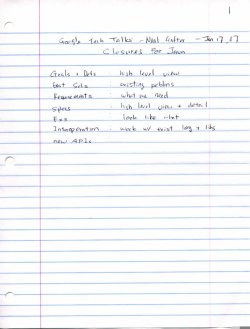 1
Google Tech Talks - Neal Gafter - Jan 17, 07
Closures for Java
Goals + Defs : high level view
Exist Solns : existing problems
Requirements : what we need
Specs : high level view + detail
Exs : look like what
Interoperation : work w/ exist lang + libs
new APIs